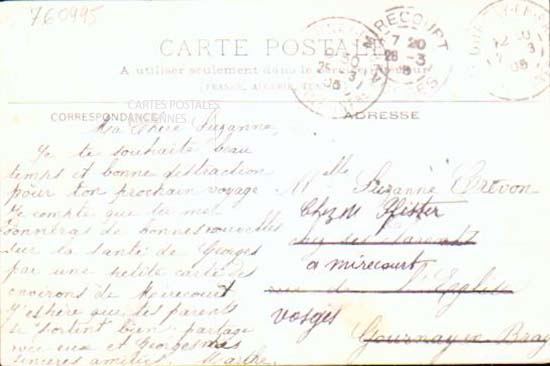 760995
CARTE POSTALE
A utiliser seulement dans le
FRANCE, ALGERIE, TUN
CARTES POSTALES
ANCIENNES
CORRESPONDANCE
ADRESSE
MIRECOURT
7 20
28-3
05
Ma Chère Suzanne,
Je te souhaite beau
temps et bonne distraction
pour ton prochain voyage
Je compte que tu me
donneras de bonnes nouvelles
sur la santé de Georges
par une petite carte des
environs de Mirecourt
J'espère que tes parents
se portent bien partage
avec eux et Georges mes
sincères amitiés. Marthe
Mlle Suzanne Crevon
Chez M Pfister
à mirecourt
rue de l'Eglise
vosges
Gournay en Bray